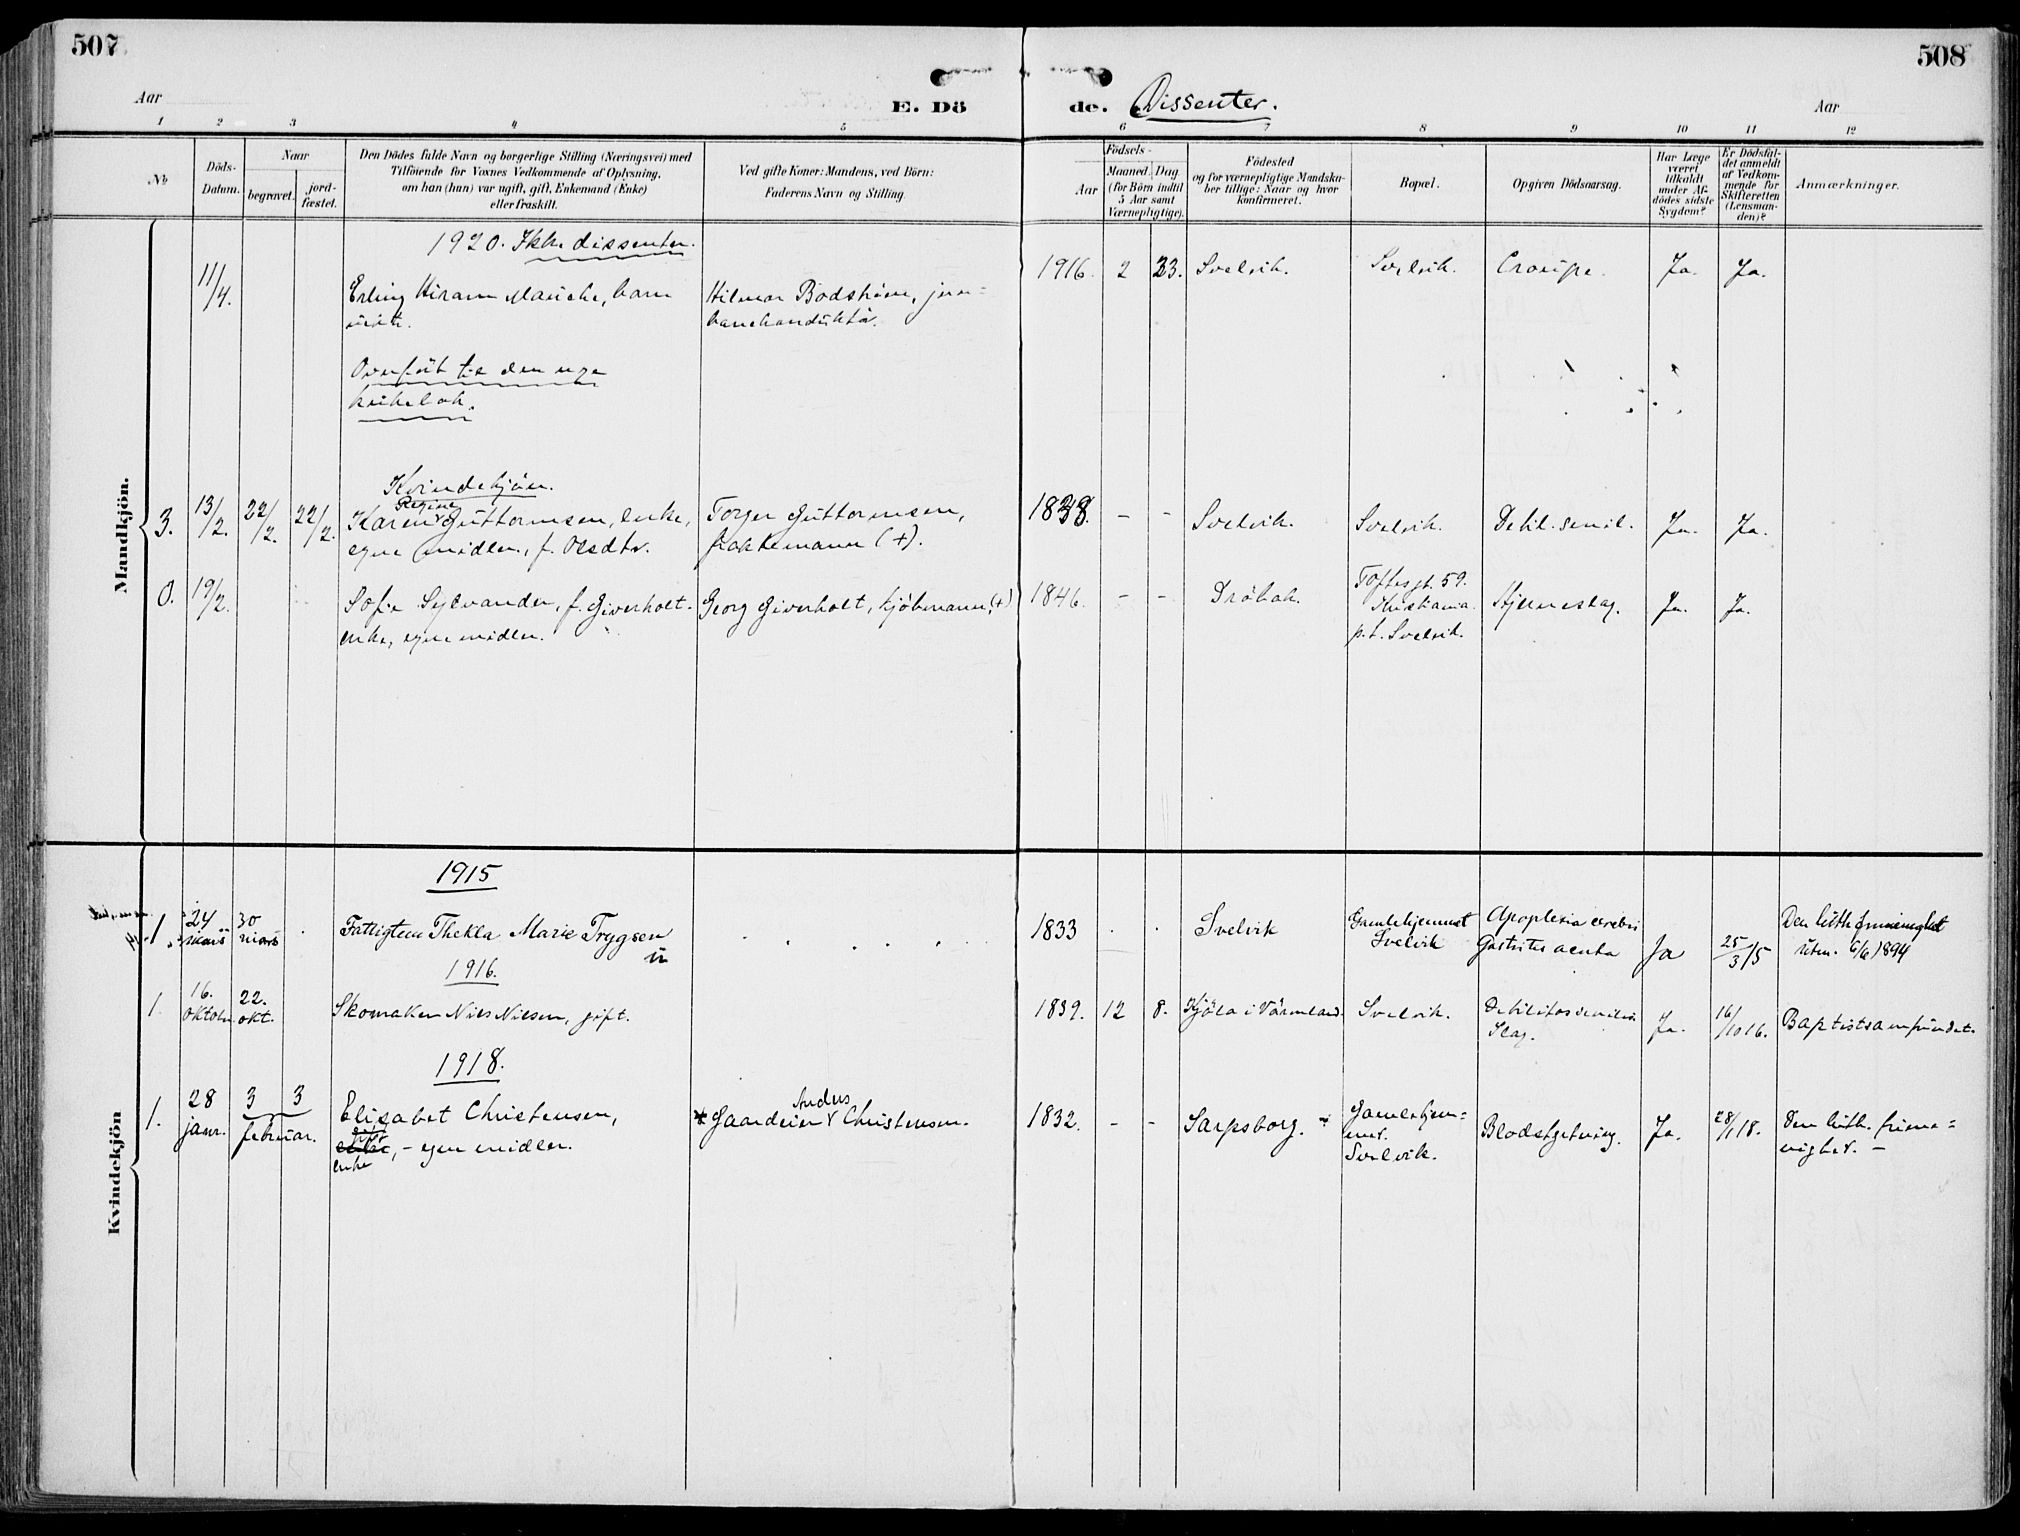 507
508
Aar
E. Dö
de. Dissenter.
Aar
1 2 3 4 5 6 7 8 9 10 11 12
No
Döds-
Datum.
Naar
begravet.
jord-
fæstet.
Den Dödes fulde Navn og borgerlige Stilling (Næringsvei) med
Tilföiende for Voxnes Vedkommende af Oplysning,
om han (hun) var ugift, gift, Enkemand (Enke)
eller fraskilt.
Ved gifte Koner: Mandens, ved Börn:
Faderens Navn og Stilling.
Födsels-
Aar
Maaned. Dag
(for Börn indtil
5 Aar samt
Værnepligtige).
Födested
og for værnepligtige Mandska-
ber tillige: Naar og hvor
konfirmeret.
Bopæl.
Opgiven Dödsaarsag.
Har Læge
været
tilkaldt
under Af-
dödes sidste
Sygdom?
Er Dödsfal-
det anmeldt
af Vedkom-
mende for
Skifteretten
(Lensman-
den)?
Anmærkninger.
Mandkjön.
1920. Ikke dissenter.
11/4. 1916. 2 23. Svelvik. Svelvik. Croupe. Ja. Ja.
Erling Hiram Mauche, barn Hilmar Bodström, jern-
banekonduktör.
Overfört til den nye
kirkebok.
Kvindekjön.
Regine
3. 13/2. 22/2. 22/2. Karen Guttormsen, enke, Torger Guttormsen, 1838. - - Svelvik. Svelvik. Debil. senil. Ja. Ja.
egne midler, f. Olsdtr. fraktemann (+).
0. 19/2. Sofie Sylvander, f. Giverholt- Georg Giverholt, kjöbmann, (+) 1846. - - Dröbak. Toftesgt. 59. Hjerneslag. Ja. Ja.
Kristiania.
enke, egne midler. p.t. Svelvik.
Kvindekjön
1915
1 24 mars 30 mars Fattiglem Thekla Marie Trygsen 1833 Svelvik Gamlehjemmet Svelvik Apoplexia cerebri Gastritis acuta Ja 25/3 15 Den luth frimenighet
utm. 6/6 1894
1916.
1. 16. oktobr. 22. okt. Skomaker Nils Nilsen, gift. 1839. 12 8. Kjöla i Värmland. Svelvik. Debilitas senilis. Slag. Ja. 16/10 16. Baptistsamfundet.
1918.
1. 28 janr. 3 3 februar. Elisabet Christensen, Gaardeier Anders Christensen. 1832. - - Sarpsborg. Gamlehjem-
met.
Svelvik. Blodstyrtning. Ja. 28/1 18. Den luth. frime-
nighet. -
enke, - egne midler.